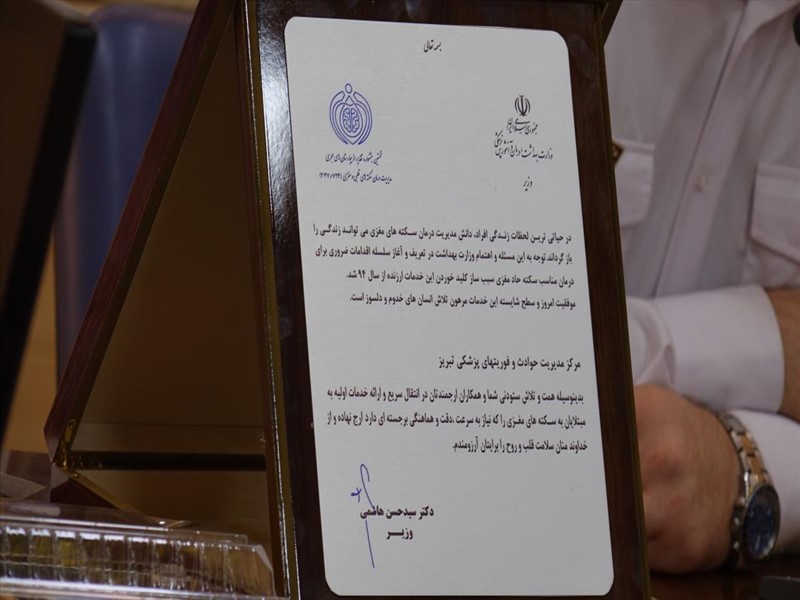 بسمه تعالی
جمهوری اسلامی ایران
وزارت بهداشت، درمان و آموزش پزشکی
وزیر
مدیریت درمان سکته های قلبی و مغزی (۲۴۷/۷۲۴)
در حیاتی ترین لحظات زندگی افراد، دانش مدیریت درمان سکته های مغزی می تواند زندگی را
باز گرداند.توجه به این مسئله و اهتمام وزارت بهداشت در تعریف و آغاز سلسله اقدامات ضروری برای
درمان مناسب سکته حاد مغزی سبب ساز کلید خوردن این خدمات ارزنده از سال ۹۴ شد.
موفقیت امروز و سطح شایسته این خدمات مرهون تلاش انسان های خدوم و دلسوز است.
مرکز مدیریت حوادث و فوریتهای پزشکی تبریز
بدینوسیله همت و تلاش ستودنی شما و همکاران ارجمندتان در انتقال سریع و ارائه خدمات اولیه به
مبتلایان به سکته های مغزی را که نیاز به سرعت ،دقت و هماهنگی برجسته ای دارد ارج نهاده و از
خداوند منان سلامت قلب و روح را برایتان آرزومندم.
دکتر سیدحسن هاشمی
وزیر